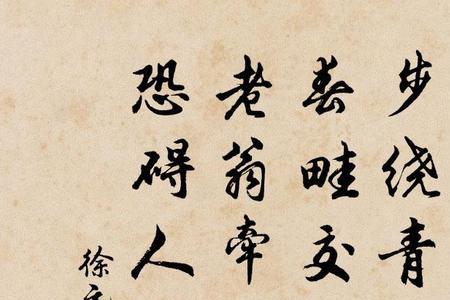 步绕青
春畦交
老翁牵
恐碍人
徐